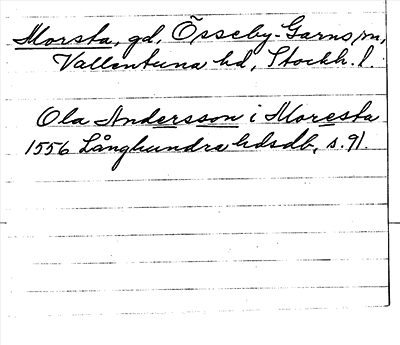 Morsta, gd, Össeby-Garns sn,
Vallentuna hd, Stockh. l.
Ola Andersson i Moresta
1556 Långhundra hdsdb, s. 91.